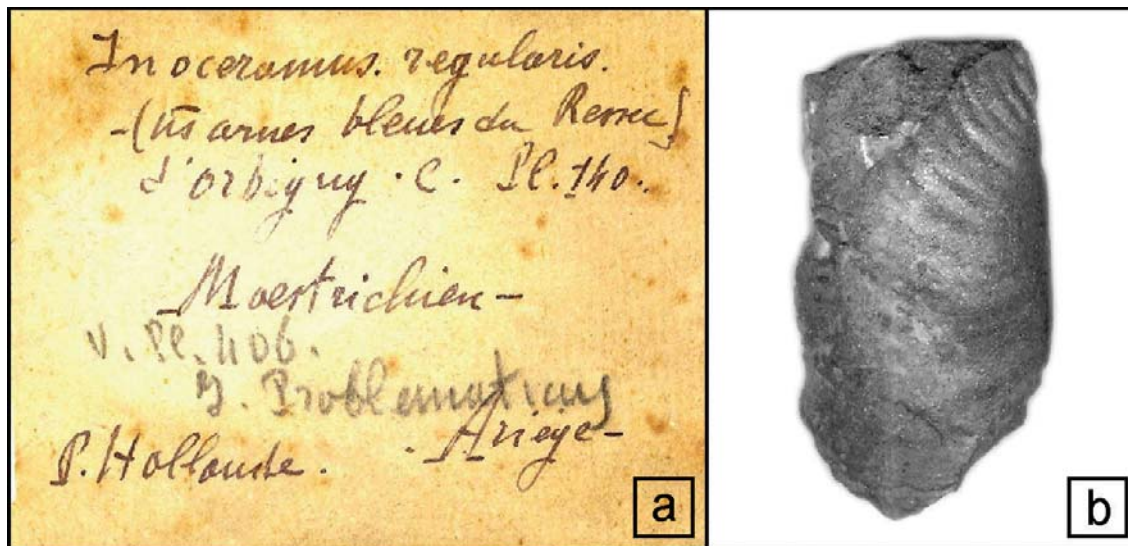 Inoceramus. regularis.
-(Marnes bleues du
d'Orbigny. C. Pl. 140.
-Maestrichien-
V. Pl. 406.
I. Problematicus
P. Hollande. -Ariège-
a
b